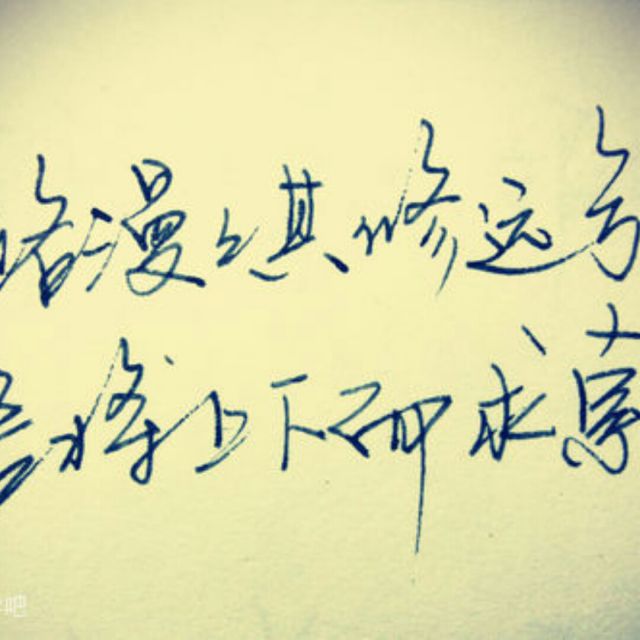 路漫漫其修远兮
吾将上下而求索
吧